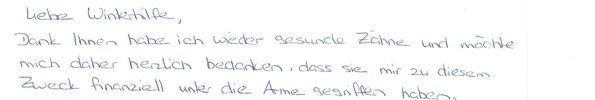 Liebe Winterhilfe,
Dank Ihnen habe ich wieder gesunde Zähne und möchte
mich daher herzlich bedanken, dass sie mir zu diesem
Zweck finanziell unter die Arme gegriffen haben.